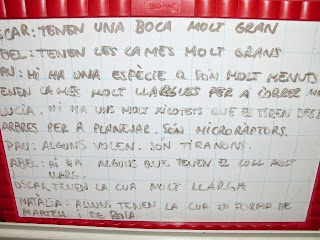 SCAR: TENEN UNA BOCA MOLT GRAN
BEL: TENEN LES CAMES MOLT GRANS
PAU: HI HA UNA ESPÈCIE Q SÓN MOLT MENUTS I
TENEN CAMES MOLT LLARGUES PER A CORRER MO
LUCIA: HI HA UNS MOLT XICOTETS QUE ES TIREN DES D
ARBRES PER A PLANEJAR. SÓN MICRORAPTORS.
PAU: ALGUNS VOLEN. SÓN TIRANONS.
ABEL: HI HA ALGUNS QUE TENEN EL COLL MOLT
LLARG.
OSCAR: TENEN LA CUA MOLT LLARGA
NATALIA: ALGUNS TENEN LA CUA EN FORMA DE
MARTELL I DE BOLA